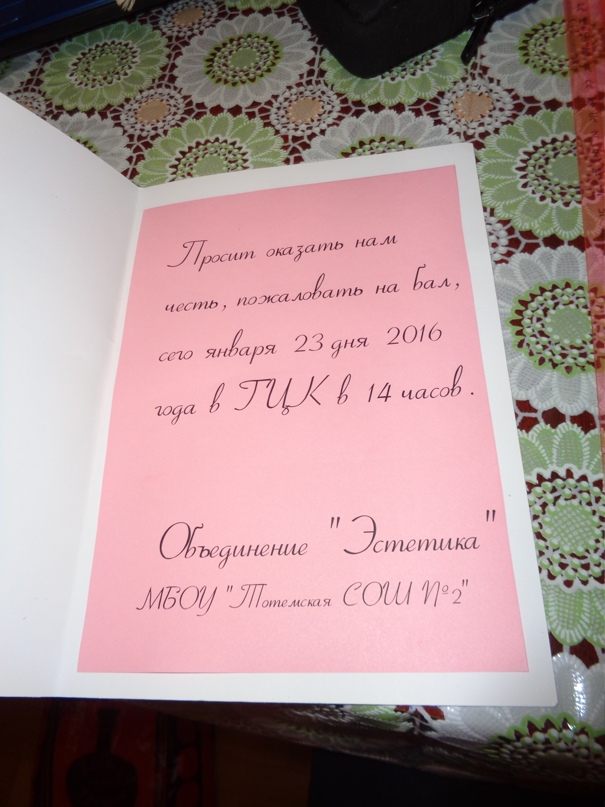 Просит оказать нам
честь, пожаловать на бал,
сего января 23 дня 2016
года в ГЦК в 14 часов.
Объединение "Эстетика"
МБОУ "Тотемская СОШ №2"